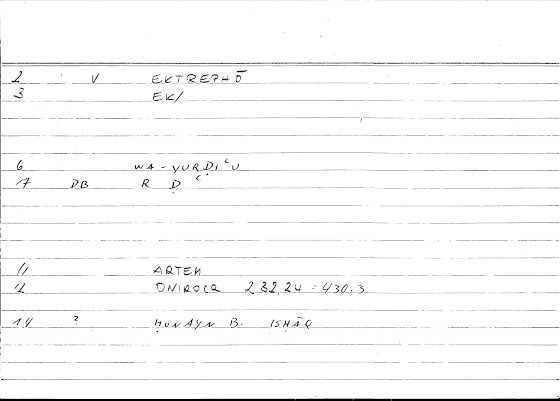 2 V EKTREPHŌ
3 EK/
6 WA-YURḌIʿU
7 DB R Ḍ ʿ
11 ARTEM
12 ONIROCR 232,24 = 430.3
14 ? ḤUNAYN B. ISḤĀQ